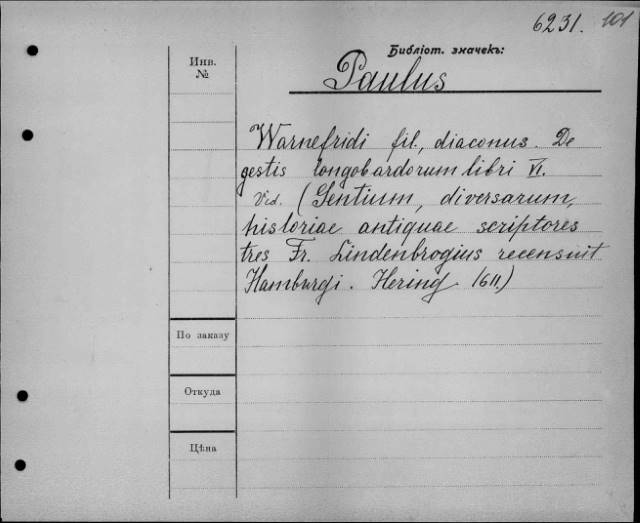 6231. 101
Библіот. значекъ:
Инв.
№
Paulus
Warnefridi fil., diaconus. De
gestis longobardorum libri VI.
Vid. (Gentium, diversarum,
historiae antiquae scriptores
tres Fr. Lindenbrogius recensuit
Hamburgi. Hering. 1611.)
По заказу
Откуда
Цѣна